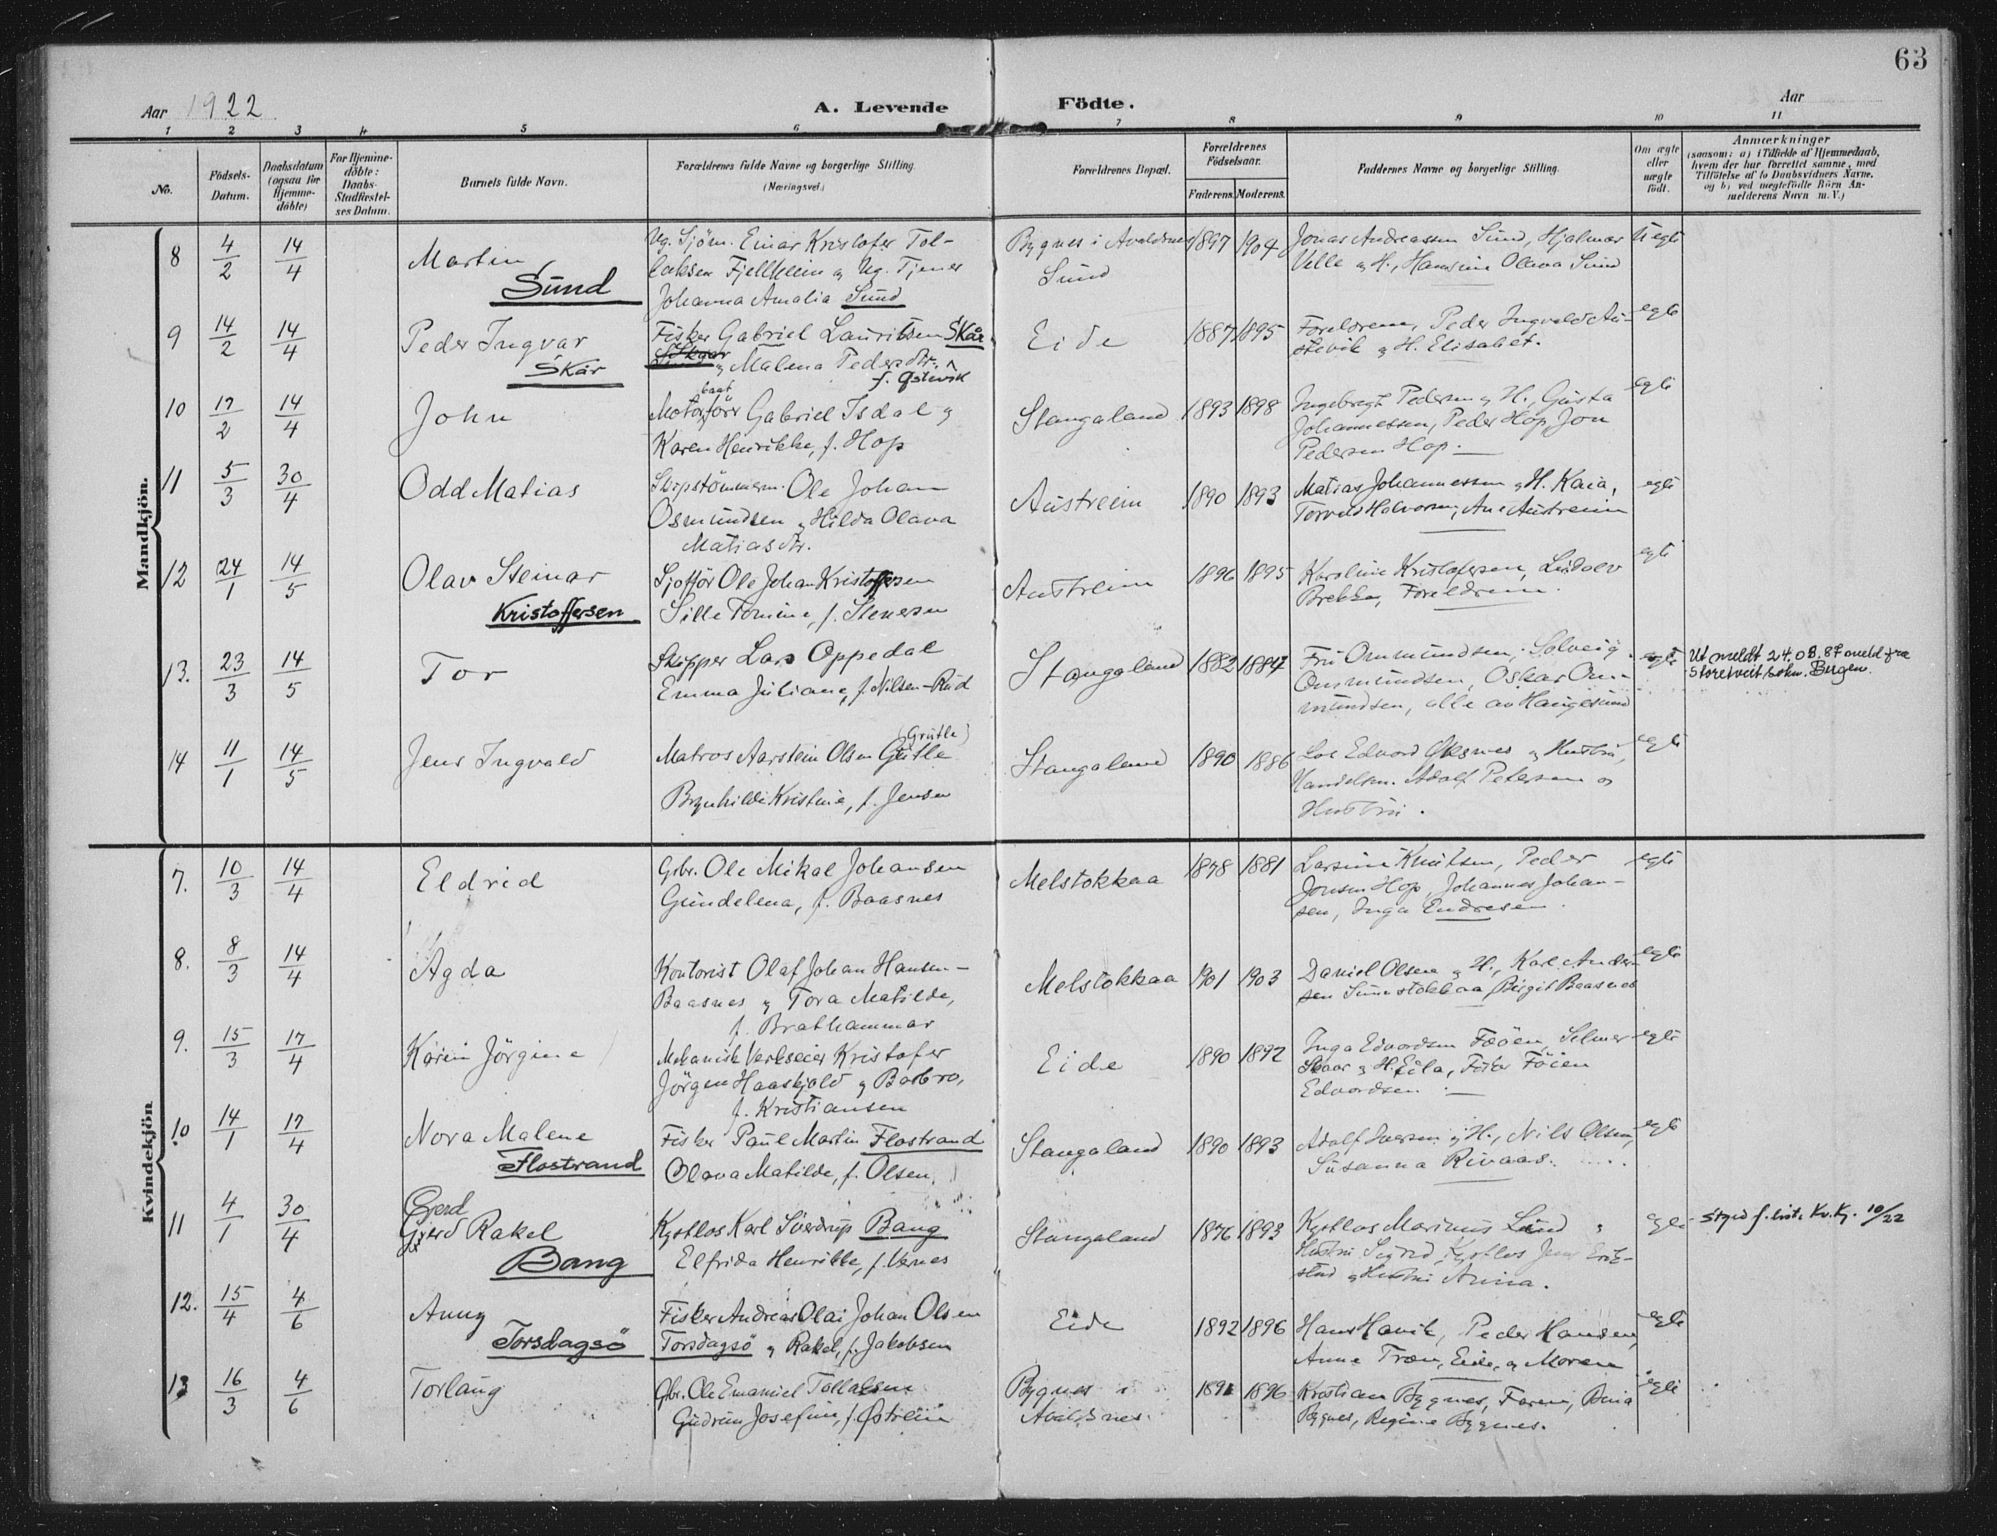 63
Aar 1922
A. Levende Födte.
Aar
1 2 3 4 5 6 7 8 9 10 11
No.
Födsels-
Datum.
Daabsdatum
(ogsaa for
Hjemme-
döbte)
For Hjemme-
döbte:
Daabs-
Stadfæstel-
ses Datum.
Barnets fulde Navn.
Forældrenes fulde Navne og borgerlige Stilling.
(Næringsvei.)
Forældrenes Bopæl.
Forældrenes
Födselsaar.
Faderens. Moderens.
Faddernes Navne og borgerlige Stilling.
Om ægte
eller
uægte
födt.
Anmærkninger
(saasom: a) i Tilfælde af Hjemmedaab,
hvem der har forrettet samme, med
Tilföielse af to Daabsvidners Navne,
og b) ved uægtefödte Börn An-
melderens Navn m. V.)
Mandkjön.
8 4/2 14/4
Martin
Sund
Ug. Sjöm. Einar Kristofer Tol-
laksen Fjellheim og Ug. Tjener
Johanna Amalia Sund
Bygnes i Avaldsnes
Sund
1897 1904
Jonas Andreassen Sund, Hjalmar
Velle og H., Hansine Olava Sund
Uegte
9 14/2 14/4
Peder Ingvar
Skår
Fisker Gabriel Lauritsen Skår
og Malena Pedersdtr.
f. Østevik
Eide
1887 1895
Foreldrene, Peder Ingvald Au-
stevik og H. Elisabet.
egte
10 17/2 14/4
John
Motorbaatförr Gabriel Isdal og
Karen Henrikke, f. Hop
Stangaland
1893 1898
Ingebregt Pedersen og H., Gusta
Johannessen, Peder Hop, Jon
Pedersen Hop.
egte
11 5/3 30/4
Odd Matias
Skipstömmerm. Ole Johan
Osmundsen og Hilda Olava
Matiasdtr.
Austreim
1890 1893
Matias Johannessen og H. Kaia,
Halvorsen, Ane Austreim
egte
12 24/1 14/5
Olav Steinar
Kristoffersen
Sjofför Ole Johan Kristoffersen
Sille Tomine, f. Stenersen
Austreim
1896 1895
Karoline Kristofersen, Ludolv
Brekke, Foreldrene.
egte
13. 23/3 14/5
Tor
Skipper Lars Oppedal
Emma Juliane, f. Nilsen-Rud
Stangaland
1882 1884
Fru Ommundsen, Solveig
Ommundsen, Oskar Om-
mundsen, alle av Haugesund
egte
Utmeldt 24.08.87 meld fra
Storetveit sokn. Bergen.
14 11/1 14/5
Jens Ingvald
(Grutle)
Matros Aarstein Olsen Gutle
Brynhilde Kristine, f. Jensen
Stangaland
1890 1886
Los Edvard Øksnes og Hustru,
Handelsm. Adolf Petersen og
Hustru.
egte
Kvindekjön
7. 10/3 14/4
Eldrid
Gbr. Ole Mikal Johansen
Gundelena, f. Baasnes
Melstokkaa
1878 1881
Larsine Knutsen, Peder
Jonsen Hop, Johannes Johan-
sen, Inga Endresen.
egte
8. 8/3 14/4
Agda
Kontorist Olaf Johan Hansen-
Baasnes og Tora Matilde,
f. Brathammar
Melstokkaa
1901 1903
Daniel Olsen og H., Karl Ander-
sen, Birgit Baasnes
egte
9. 15/3 17/4
Karin Jörgine
Mekanisk Verkseier Kristofer
Jörgen Haaskjold og Barbro,
f. Kristiansen
Eide
1890 1892
Inga Edvardsen Föien, Selmer
Skaar og H. Eila, Föien
Edvardsen
egte
10 14/1 17/4
Nora Malene
Flostrand
Fisker Paul Martin Flostrand
Olava Matilde, f. Olsen
Stangaland
1890 1893
Adolf Iversen og H., Nils Olsen,
Susanna Rivaas.
egte
11 4/1 30/4
Gerd
Gjerd Rakel
Bang
Kystlos Karl Sverdrup Bang
Elfrida Henrikke, f. Vernes
Stangaland
1876 1893
Kystlos Marinus Lund
Hustru Sigrid, Kystlos Jens Erik-
stad og Hustru Anna.
egte
10/22
12. 15/4 4/6
Anny
Torsdagsö
Fisker Andreas Olai Johan Olsen
Torsdagsö og Rakel, f. Jakobsen
Eide
1892 1896
Hans Havik, Peder Hansen,
Anne Træn, Eide, og Moren
egte
13 16/3 4/6
Torlaug
Gbr. Ole Emanuel Tollaksen
Gudrun Josefine, f. Østreim
Bygnes i
Avaldsnes.
1891 1896
Kristian Bygnes, Faren, Dina
Bygnes, Regine Bygnes.
egte